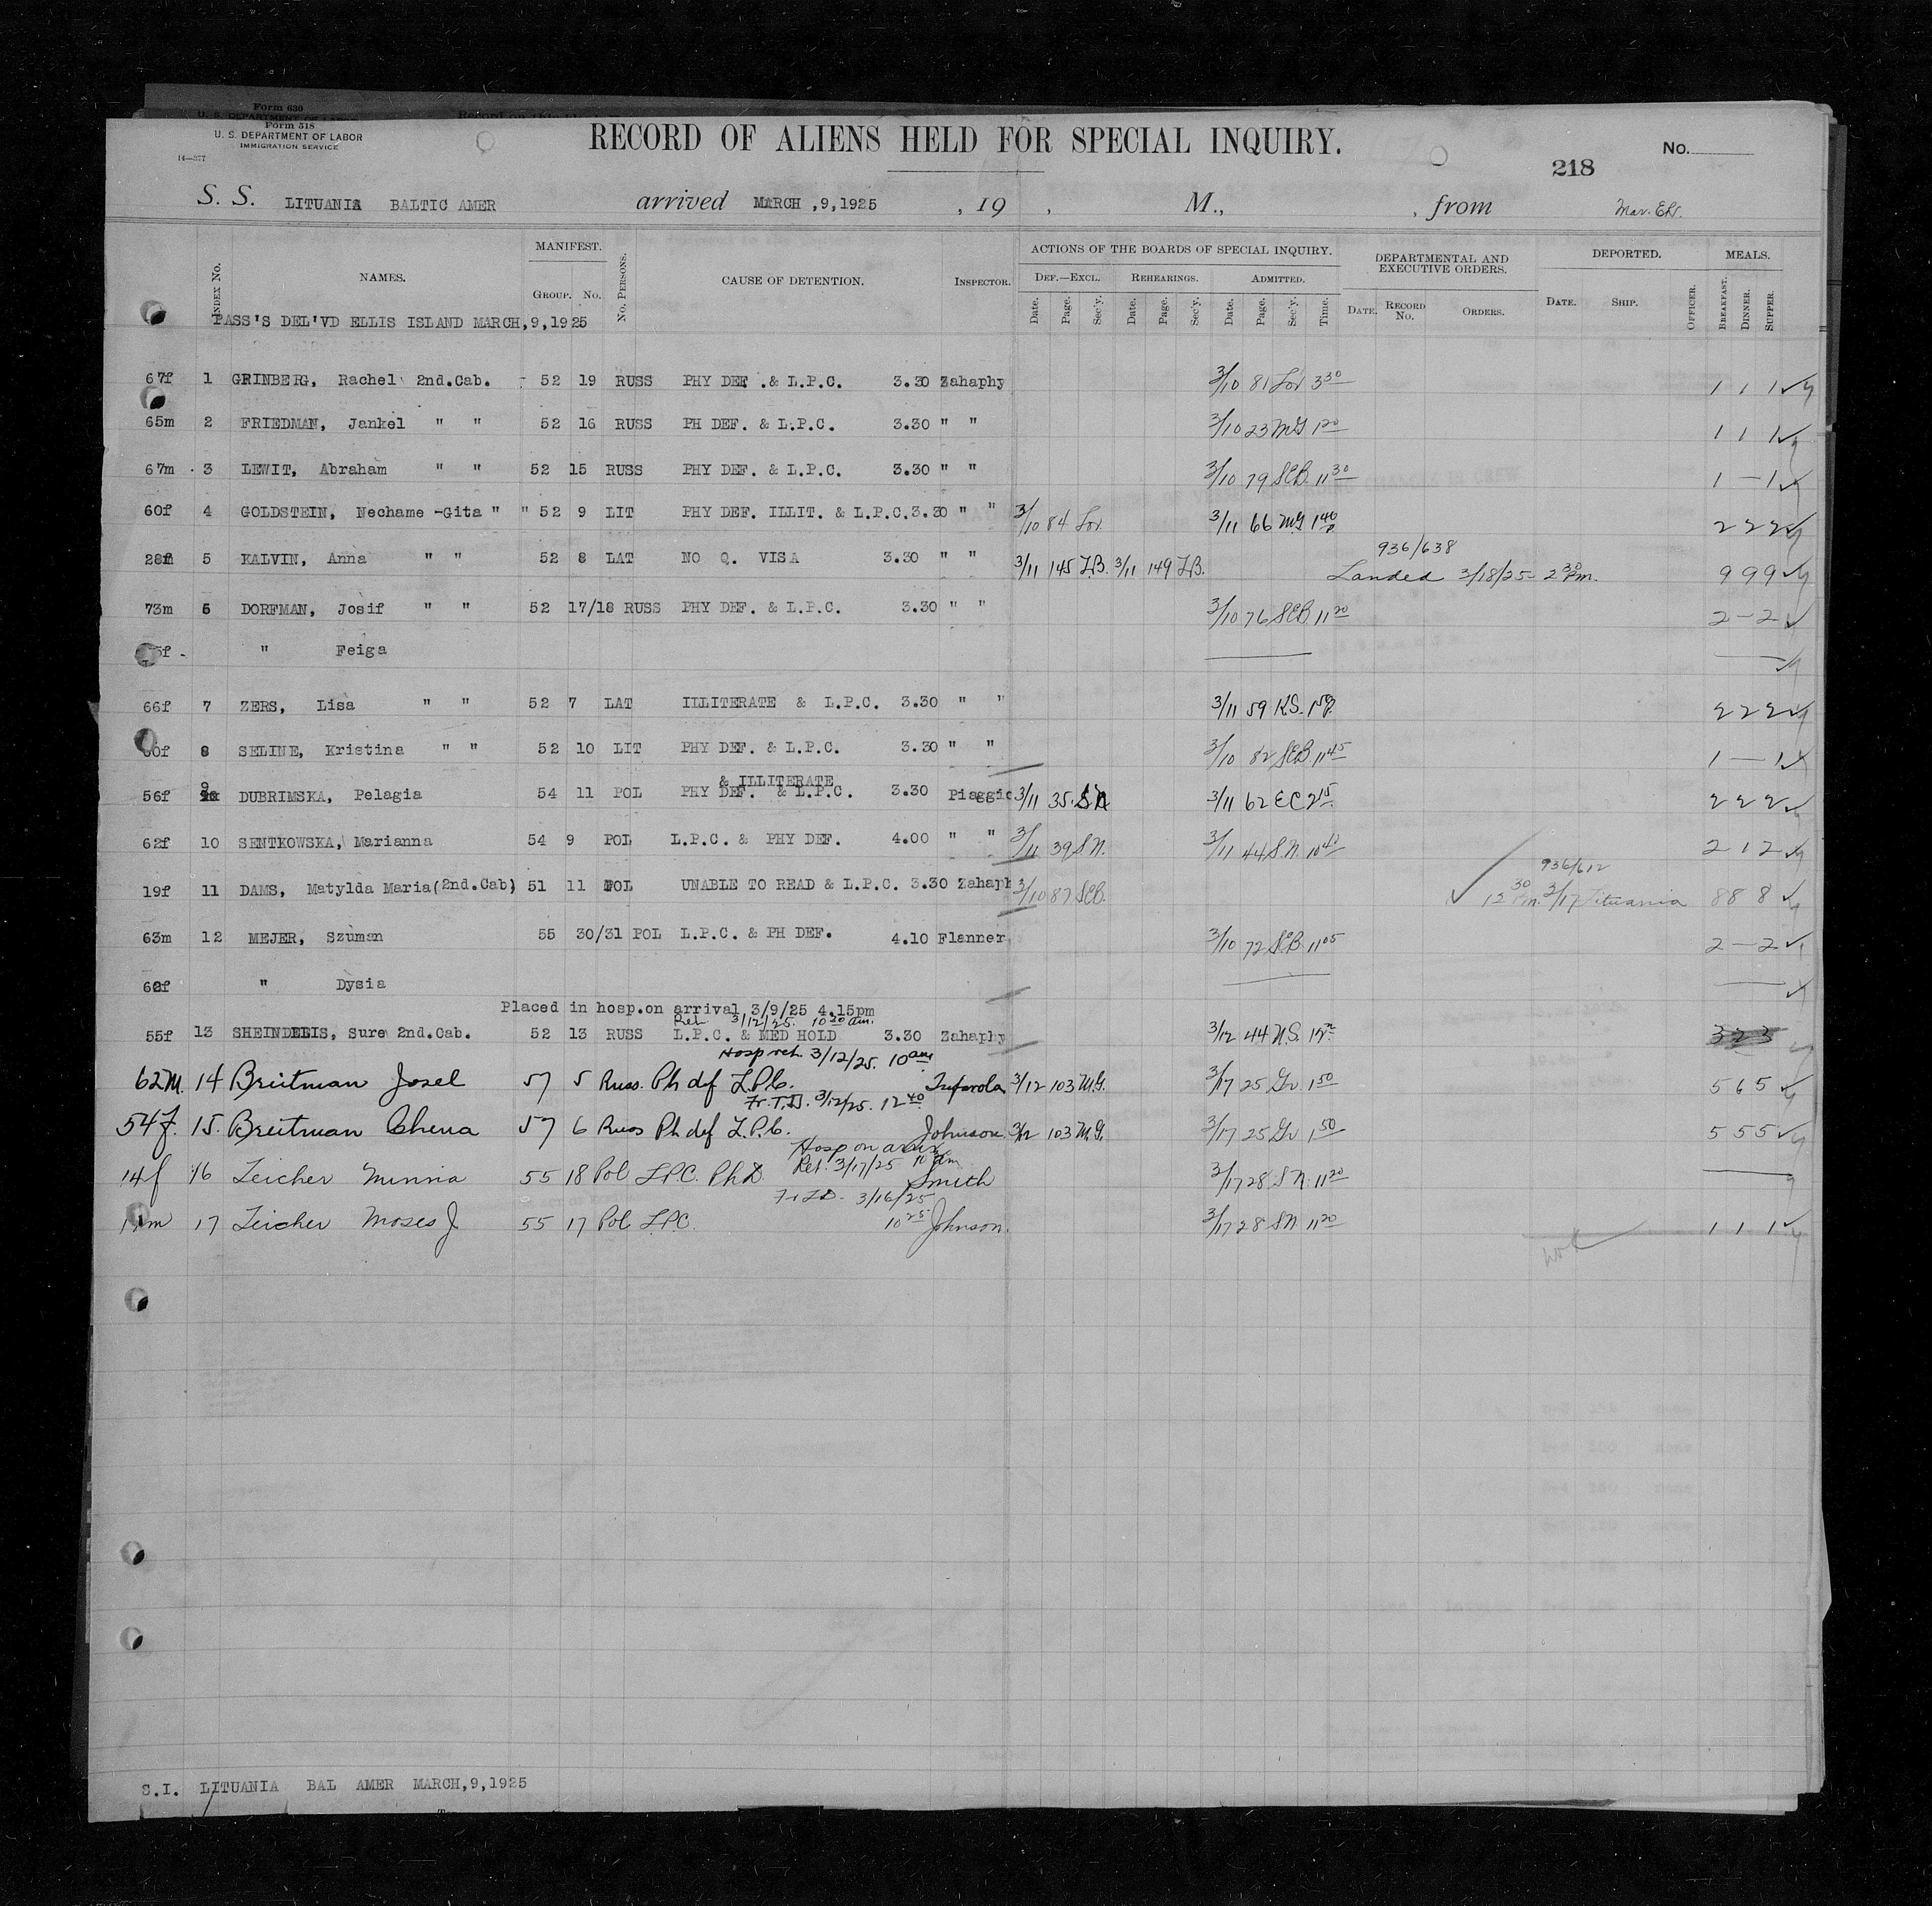 Form 630
Form 518
U. S. DEPARTMENT OF LABOR
IMMIGRATION SERVICE
14—377
RECORD OF ALIENS HELD FOR SPECIAL INQUIRY.
No.
218
S. S. LITUANIA BALTIC AMER arrived MARCH ,9,1925 , 19 , M., , from
INDEX No. NAMES. MANIFEST. GROUP. No. No. PERSONS. CAUSE OF DETENTION. INSPECTOR. ACTIONS OF THE BOARDS OF SPECIAL INQUIRY. DEF.—EXCL. Date. Page. Sec'y. REHEARINGS. Date. Page. Sec'y. ADMITTED. Date. Page. Sec'y. Time. DEPARTMENTAL AND EXECUTIVE ORDERS. DATE. RECORD No. ORDERS. DEPORTED. DATE. SHIP. OFFICER. MEALS. BREAKFAST. DINNER. SUPPER.
PASS'S DEL'VD ELLIS ISLAND MARCH,9,1925
67f 1 GRINBERG, Rachel 2nd.Cab. 52 19 RUSS PHY DEF .& L.P.C. 3.30 Zahaphy 3/10 81 Lov 3 30 1 1 1
65m 2 FRIEDMAN, Jankel " " 52 16 RUSS PH DEF. & L.P.C. 3.30 " " 3/10 23 MG 1 20 1 1 1
67m 3 LEWIT, Abraham " " 52 15 RUSS PHY DEF. & L.P.C. 3.30 " " 3/10 79 SEB 11 30 1 — 1
60f 4 GOLDSTEIN, Nechame -Gita " " 52 9 LIT PHY DEF. ILLIT. & L.P.C.3.30 " " 3/10 84 Lov. 3/11 66 MG 1 40 2 2 2
28f 5 KALVIN, Anna " " 52 8 LAT NO Q. VISA 3.30 " " 3/11 145 L.B. 3/11 149 L.B. 936/638 Landed 3/18/25 2 30 Pm. 9 9 9
73m 6 DORFMAN, Josif " " 52 17/18 RUSS PHY DEF. & L.P.C. 3.30 " " 3/10 76 SEB 11 20 2 — 2
" Feiga
66f 7 ZERS, Lisa " " 52 7 LAT ILLITERATE & L.P.C. 3.30 " " 3/11 59 K.S. 1 50 2 2 2
60f 8 SELINE, Kristina " " 52 10 LIT PHY DEF. & L.P.C. 3.30 " " 3/10 82 SEB 11 45 1 — 1
& ILLITERATE
56f 9 DUBRIMSKA, Pelagia 54 11 POL PHY DEF. & L.P.C. 3.30 Piaggio 3/11 35 S.N. 3/11 62 EC 2 15 2 2 2
62f 10 SENTKOWSKA, Marianna 54 9 POL L.P.C. & PHY DEF. 4.00 " " 3/11 39 S.N. 3/11 44 S.N. 10 40 2 1 2
19f 11 DAMS, Matylda Maria(2nd.Cab) 51 11 POL UNABLE TO READ & L.P.C. 3.30 Zahaph 3/10 87 SEB. 936/612 12 30 Pm. 3/17 Lituania 8 8 8
63m 12 MEJER, Szuman 55 30/31 POL L.P.C. & PH DEF. 4.10 Flanner 3/10 72 SEB 11 05 2 — 2
" Dysia
Placed in hosp.on arrival 3/9/25 4.15pm
Ret 3/12/25. 10 20 am.
55f 13 SHEINDELIS, Sure 2nd.Cab. 52 13 RUSS L.P.C. & MED HOLD 3.30 Zahaphy 3/12 44 N.S. 3 2 3
Hosp ret. 3/12/25. 10 am
62M. 14 Breitman Josel 57 5 Russ. Ph def L.P.C. 3/12 103 M.G. 3/17 25 Gr. 1 50 5 6 5
Fr. T.D. 3/12/25. 12 40
54f. 15. Breitman Chena 57 6 Russ Ph def L.P.C. Johnson 3/12 103 M.G. 3/17 25 Gr 1 50 5 5 5
Hosp on
Ret. 3/17/25 10 am
14f 16 Leicher Minnia 55 18 Pol L.P.C. Ph.D. Smith 3/17 28 S.N. 11 20
Fr T.D. 3/16/25
17 Leicher Moses J 55 17 Pol L.P.C. 10 25 Johnson. 3/17 28 S.N. 11 20 1 1 1
S.I. LITUANIA BAL AMER MARCH,9,1925